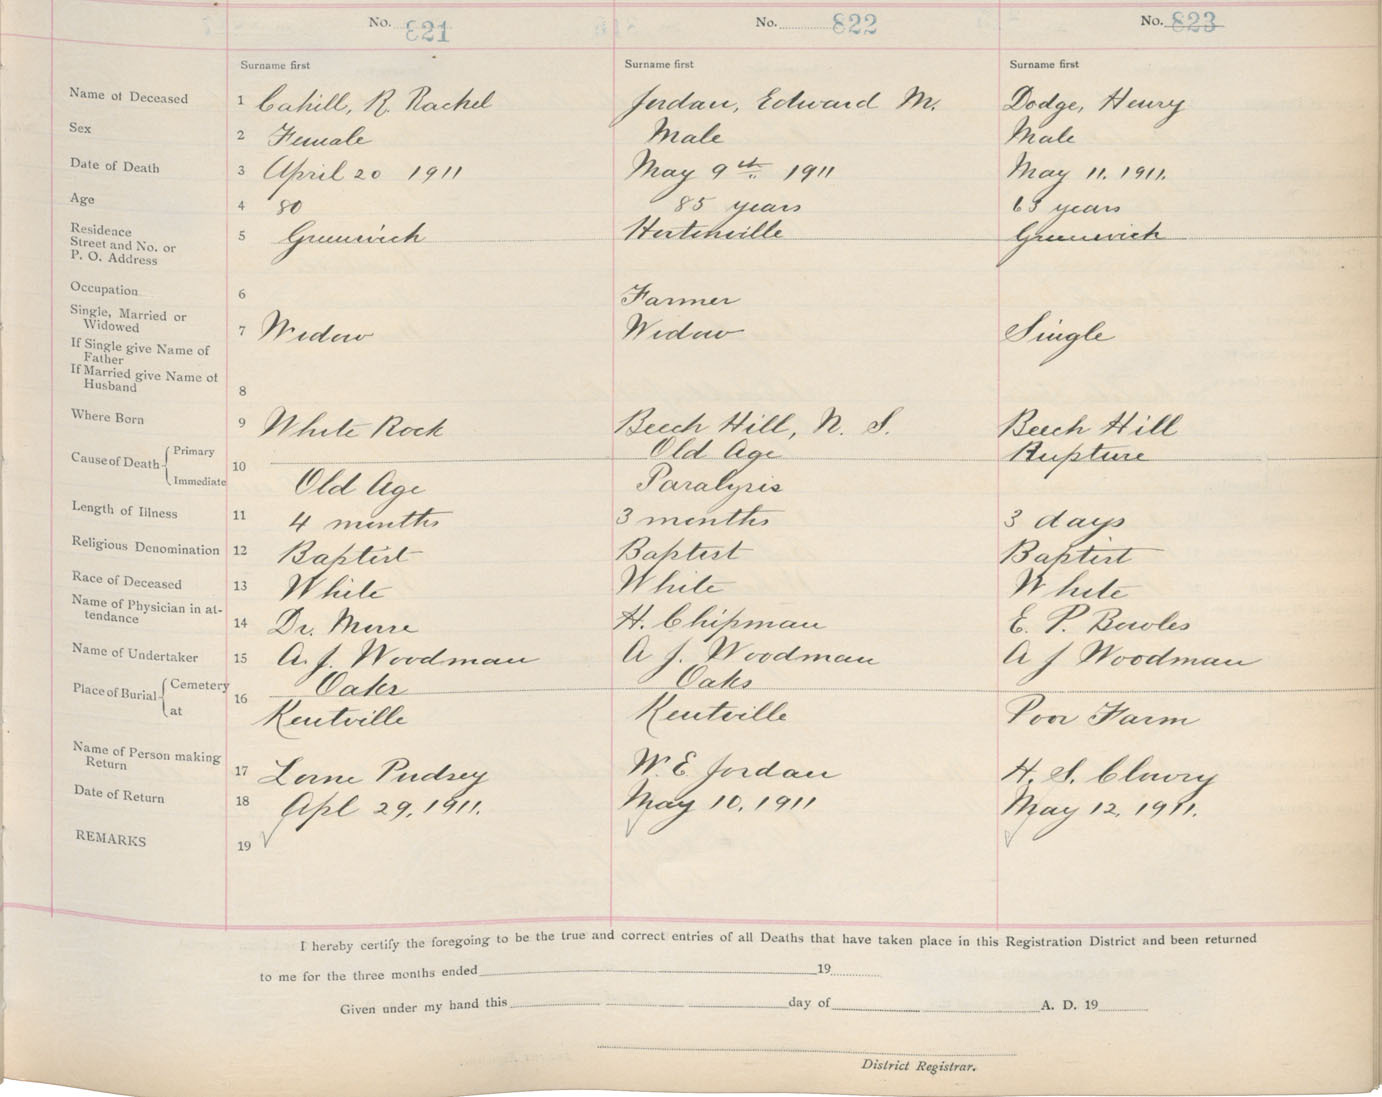 No. 821 No. 822 No. 823
Surname first Surname first Surname first
Name of Deceased 1 Cahill, R. Rachel Jordan, Edward M. Dodge, Henry
Sex 2 Female Male Male
Date of Death 3 April 20 1911 May 9th 1911 May 11. 1911.
Age 4 80 85 years 63 years
Residence
Street and No. or
P. O. Address 5 Greenwich Hortonville Greenwich
Occupation 6 Farmer
Single, Married or
Widowed 7 Widow Widow Single
If Single give Name of
Father
If Married give Name of
Husband 8
Where Born 9 White Rock Beech Hill, N. S. Beech Hill
Cause of Death Primary 10 Old Age Rupture
Immediate Old Age Paralysis
Length of Illness 11 4 months 3 months 3 days
Religious Denomination 12 Baptist Baptist Baptist
Race of Deceased 13 White White White
Name of Physician in at-
tendance 14 Dr. Morse H. Chipman E. P. Bowles
Name of Undertaker 15 A. J. Woodman A J. Woodman A J Woodman
Place of Burial Cemetery 16 Oaks Oaks
at Kentville Kentville Poor Farm
Name of Person making
Return 17 Lorne Pudsey W. E. Jordan H. S. Clowry
Date of Return 18 Apl 29, 1911. May 10, 1911 May 12, 1911.
REMARKS 19
I hereby certify the foregoing to be the true and correct entries of all Deaths that have taken place in this Registration District and been returned
to me for the three months ended 19
Given under my hand this day of A. D. 19
District Registrar.